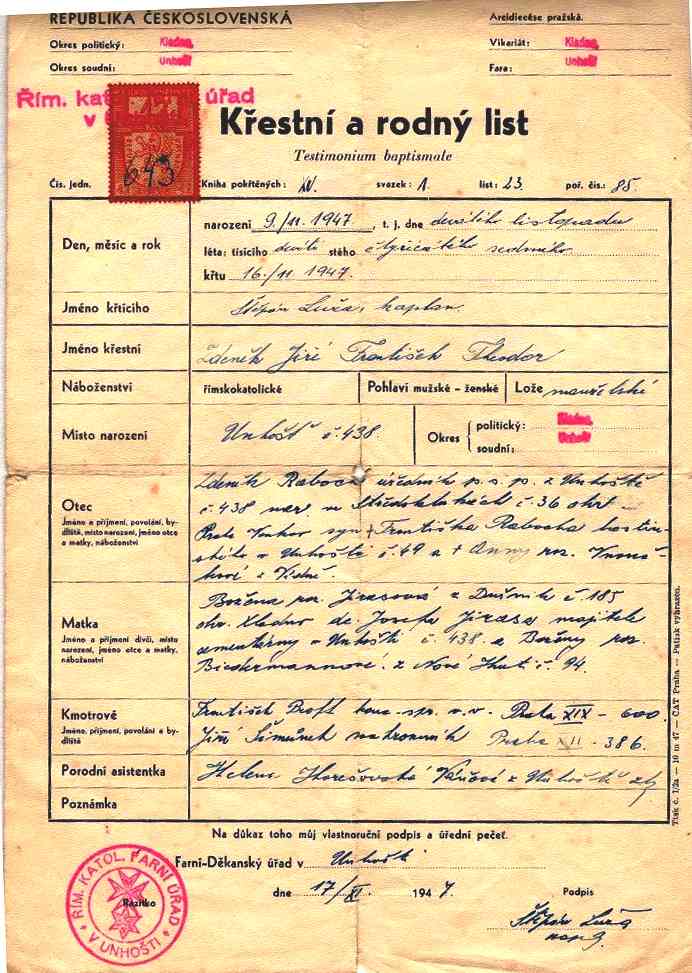 REPUBLIKA ČESKOSLOVENSKÁ
Arcidiecése pražská.
Okres politický: Kladno
Vikariát: Kladno
Okres soudní: Unhošť
Fara: Unhošť
Řím. kat úřad
v
643
Křestní a rodný list
Testimonium baptismale
Čís. jedn. Kniha pokřtěných: XV. svazek: 1. list: 23. poř. čís.: 85.
Den, měsíc a rok
narození 9./11. 1947, t. j. dne devátého listopadu
léta: tisícího devíti stého čtyřicátého sedmého
křtu 16./11 1947.
Jméno křtícího
Štěpán Luža, kaplan.
Jméno křestní
Zdeněk Jiří František Theodor
Náboženství
římskokatolické
Pohlaví mužské – ženské
Lože manželské
Místo narození
Unhošť č. 438.
Okres
politický: Kladno
soudní: Unhošť
Otec
Jméno a příjmení, povolání, by-
dliště, místo narození, jméno otce
a matky, náboženství
Zdeněk úředník p. s. p. z Unhoště
č. 438 nar. ve č. 36 okr.
Praha Venkov syn + Františka
v Unhošti č. 49 a + Anny roz.
z Vídně.
Matka
Jméno a příjmení dívčí, místo
narození, jméno otce a matky,
náboženství
Božena roz. Jirasová z Dušník č. 185
okr. Kladno dc. Josefa Jirasa majitele
v Unhošti č. 438. a Boženy roz.
Biedermannové z Nové Huti č. 94.
Kmotrové
Jméno, příjmení, povolání a by-
dliště
František v. v. Praha XIX – 600.
Jiří Šimůnek Praha XII - 386.
Porodní asistentka
Helena z Unhoště
Poznámka
Na důkaz toho můj vlastnoruční podpis a úřední pečeť.
Farní-Děkanský úřad v Unhošti
dne 17/XI. 1947.
Podpis
Razítko
ŘÍM. KATOL. FARNÍ ÚŘAD
V UNHOŠTI
Štěpán Luža
kap.
Tisk č. 1/2a — 10 m 47 — ČAT Praha — Patisk vyhrazen.